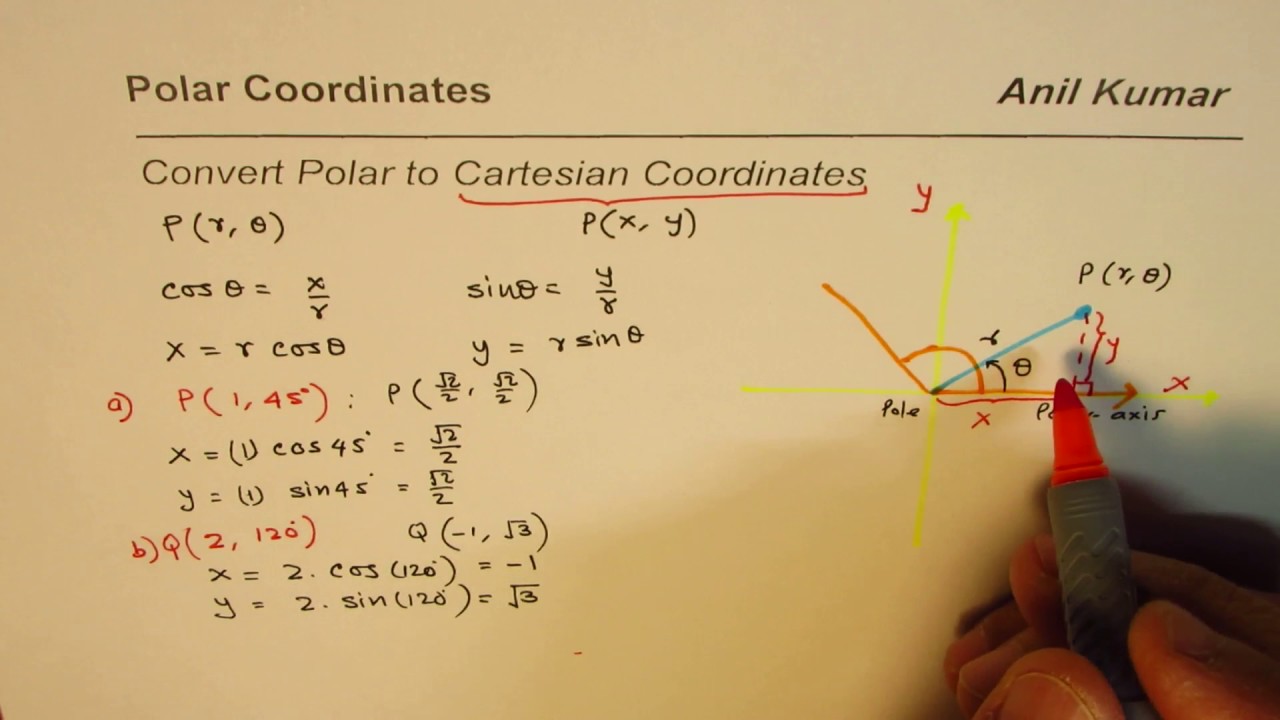 Polar Coordinates
Anil Kumar
Convert Polar to Cartesian Coordinates
P(r, θ)
P(x, y)
cos θ = x/r
sinθ = y/r
x = r cosθ
y = r sinθ
a) P(1, 45°) : P(√2/2, √2/2)
x = (1) cos 45° = √2/2
y = (1) sin45° = √2/2
b) Q(2, 120°)
Q(-1, √3)
x = 2. cos(120°) = -1
y = 2. sin(120°) = √3
y
P(r, θ)
r
θ
y
x
Pole
x
axis